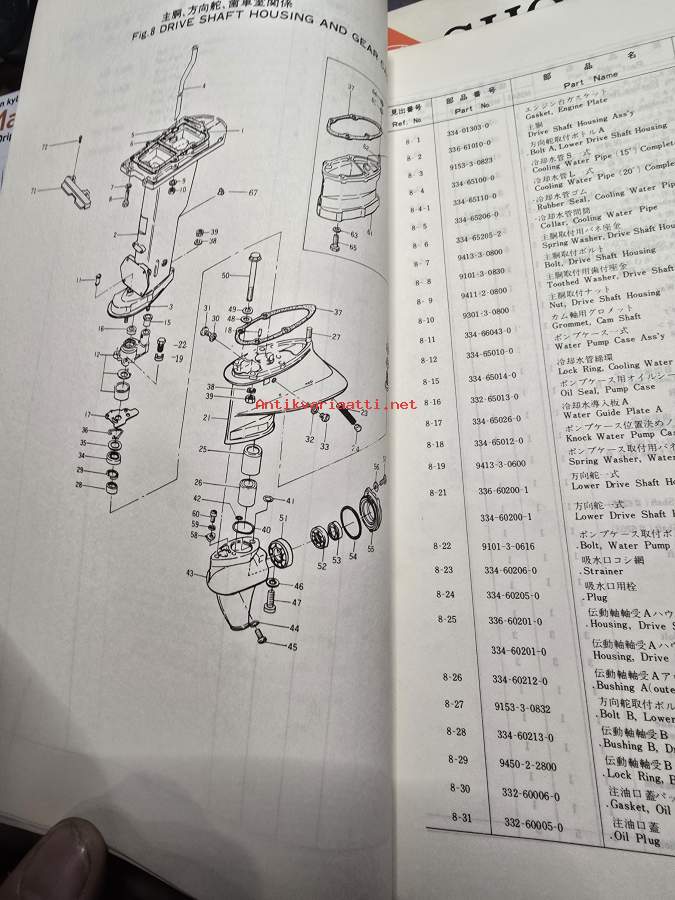 主胴、方向舵、歯車室関係
Fig.8 DRIVE SHAFT HOUSING AND GEAR
見出番号
Ref. No
部品番号
Part No
部品名
Part Name
エンジン台ガスケット
Gasket, Engine Plate
8-1
334-01303-0
主胴
Drive Shaft Housing Ass'y
8-2
336-61010-0
方向舵取付ボルトA
.Bolt A, Lower Drive Shaft Housing
8-3
9153-3-0823
冷却水管S一式
Cooling Water Pipe (15") Complete
8-4
334-65100-0
冷却水管L一式
Cooling Water Pipe (20") Complete
8-4-1
334-65110-0
冷却水管ゴム
Rubber Seal, Cooling Water Pipe
8-5
334-65206-0
冷却水管間筒
Collar, Cooling Water Pipe
8-6
334-65205-2
主胴取付用バネ座金
Spring Washer, Drive Shaft
8-7
9413-3-0800
主胴取付ボルト
Bolt, Drive Shaft Housing
8-8
9101-3-0830
主胴取付用歯付座金
Toothed Washer, Drive Shaft
8-9
9411-2-0800
主胴取付ナット
Nut, Drive Shaft Housing
8-10
9301-3-0800
カム軸用グロメット
Grommet, Cam Shaft
8-11
334-66043-0
ポンプケース一式
Water Pump Case Ass'y
8-12
334-65010-0
冷却水管締環
Lock Ring, Cooling Water
8-15
334-65014-0
ポンプケース用オイルシー
Oil Seal, Pump Case
8-16
332-65013-0
冷却水導入板A
Water Guide Plate A
8-17
334-65026-0
ポンプケース位置決めノ
Knock Water Pump Cas
8-18
334-65012-0
ポンプケース取付用バネ
Spring Washer, Water
8-19
9413-3-0600
方向舵一式
Lower Drive Shaft H
8-21
336-60200-1
方向舵一式
Lower Drive Shaft
334-60200-1
ポンプケース取付ボ
.Bolt, Water Pump
8-22
9101-3-0616
吸水口コシ網
.Strainer
8-23
334-60206-0
吸水口用栓
.Plug
8-24
334-60205-0
伝動軸軸受Aハウ
.Housing, Drive S
8-25
336-60201-0
伝動軸軸受Aハウ
Housing, Drive
334-60201-0
伝動軸軸受Aア
.Bushing A(oute
8-26
334-60212-0
方向舵取付ボル
.Bolt B, Lower
8-27
9153-3-0832
伝動軸軸受B
.Bushing B, D
8-28
334-60213-0
伝動軸軸受B
.Lock Ring, B
8-29
9450-2-2800
注油口蓋パッ
.Gasket, Oil
8-30
332-60006-0
注油口蓋
.Oil Plug
8-31
332-60005-0
Antikvariaatti.net